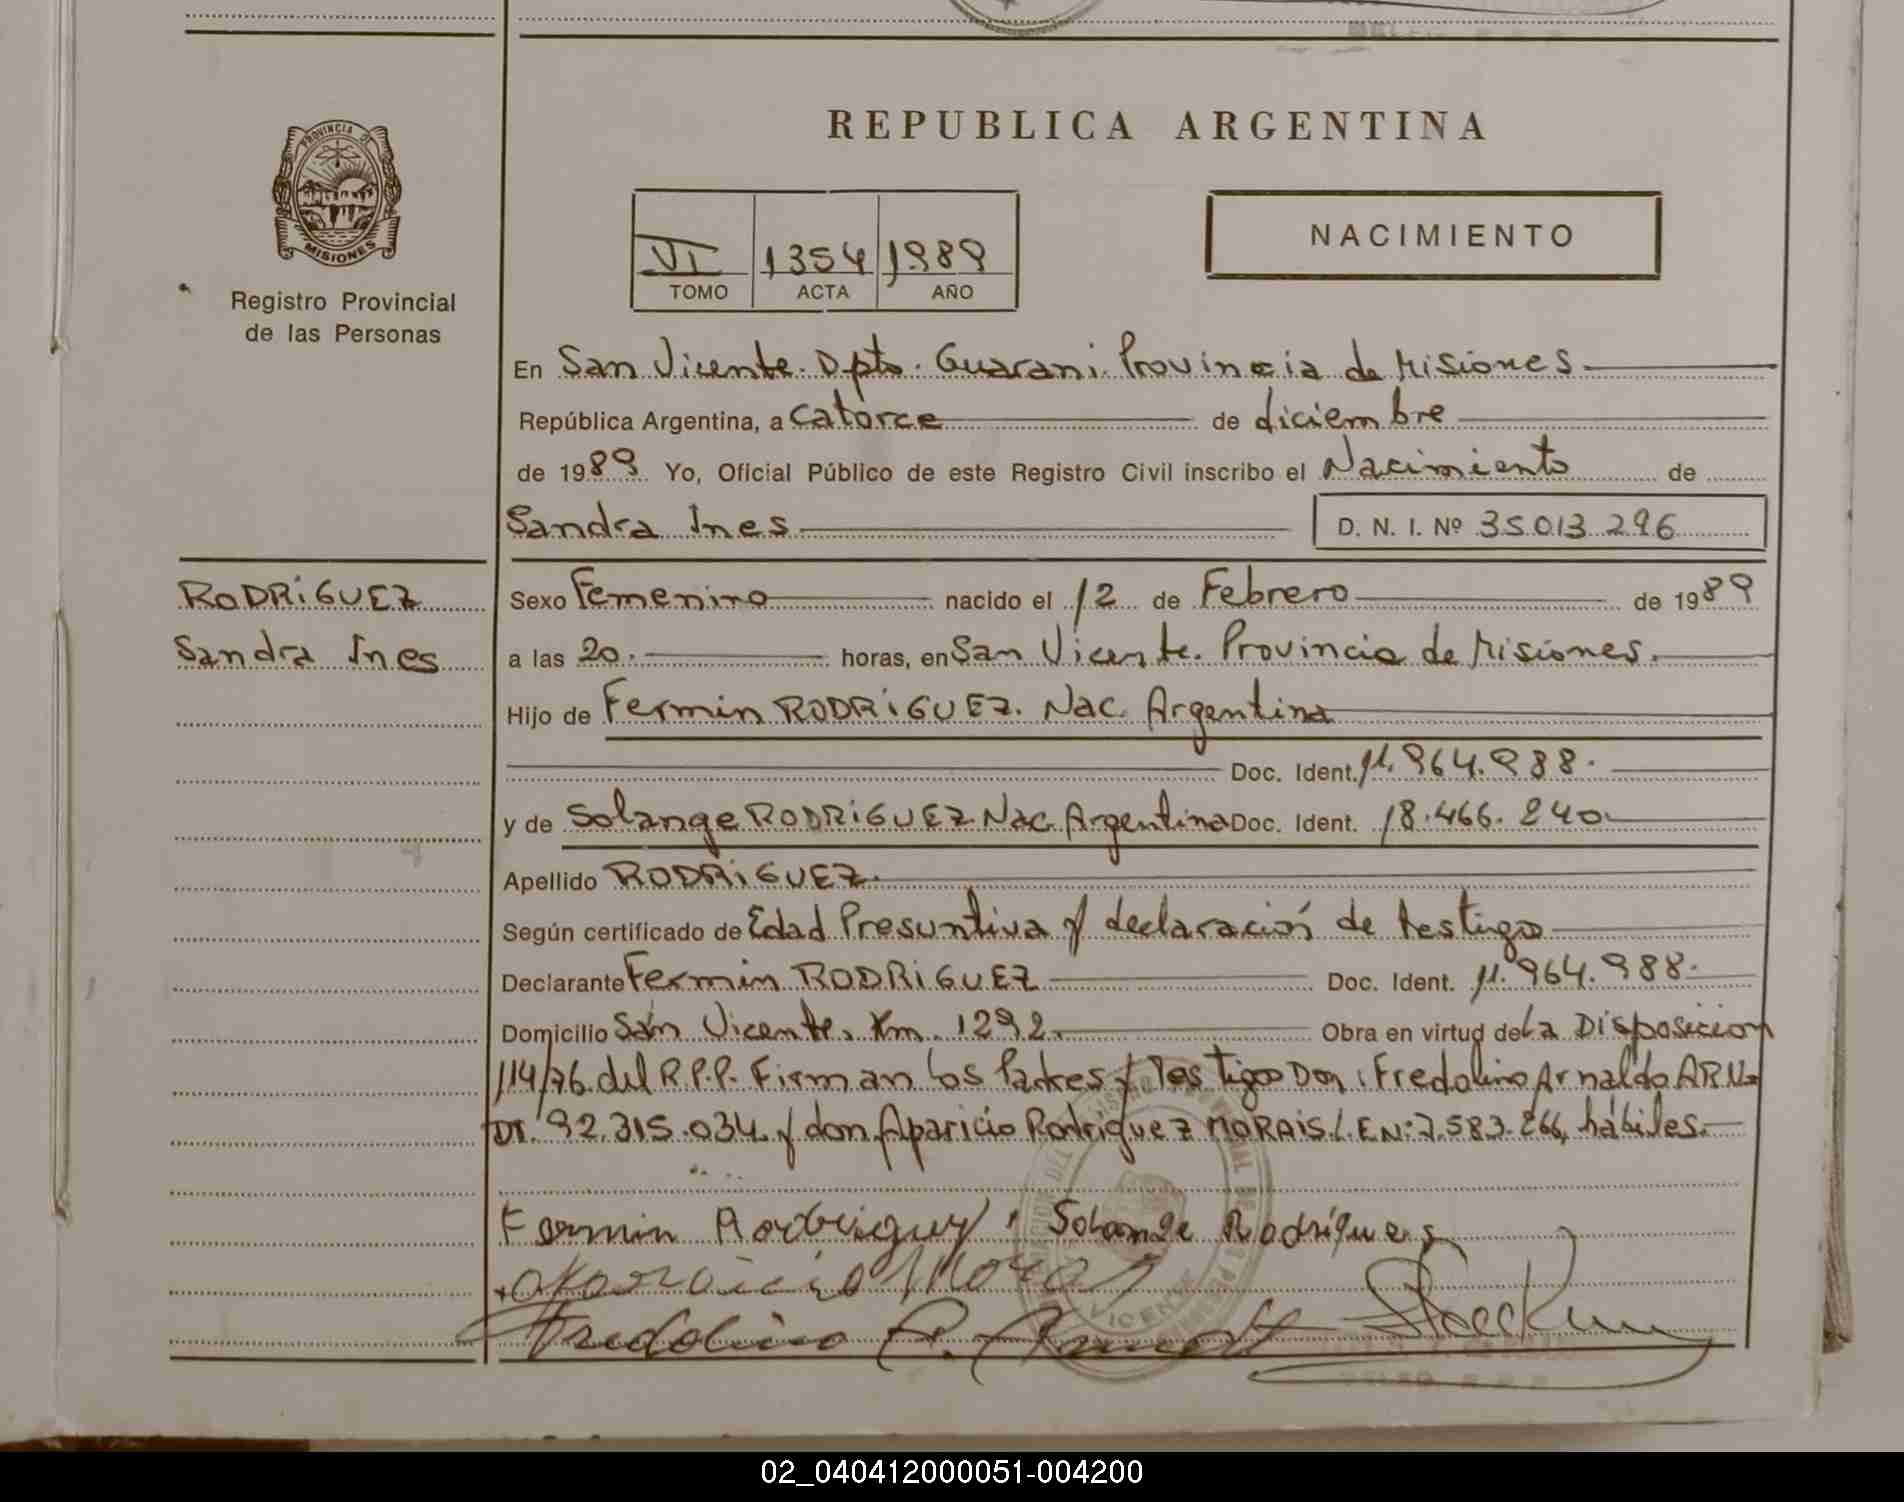 REPUBLICA ARGENTINA
PROVINCIA DE
MISIONES
Registro Provincial
de las Personas
VI 1354 1989
TOMO ACTA AÑO
NACIMIENTO
En San Vicente. Dpto. Guarani. Provincia de Misiones
República Argentina, a Catorce de diciembre
de 1989 Yo, Oficial Público de este Registro Civil inscribo el Nacimiento de
Sandra Ines D. N. I. Nº 35.013.296
RODRíGUEZ
Sandra Ines
Sexo Femenino nacido el 12 de Febrero de 1989
a las 20. horas, en San Vicente. Provincia de Misiones.
Hijo de Fermin RODRíGUEZ. Nac. Argentina
Doc. Ident. 11.964.988.
y de Solange RODRíGUEZ Nac. Argentina Doc. Ident. 18.466.240.
Apellido RODRíGUEZ.
Según certificado de Edad Presuntiva y declaración de testigo
Declarante Fermin RODRiGUEZ Doc. Ident. 11.964.988.
Domicilio San Vicente. Km. 1292. Obra en virtud de La Disposicion
114/76 del R.P.P. Firman los Padres y Testigos Don: Fredolino Arnaldo
DI. 92.315.034 y don Aparicio Rodriguez MORAIS L.EN: 7.583.266, hábiles.
Fermin Rodriguez Solange Rodrígues
Fredolino A.
VICENTE
02_040412000051-004200